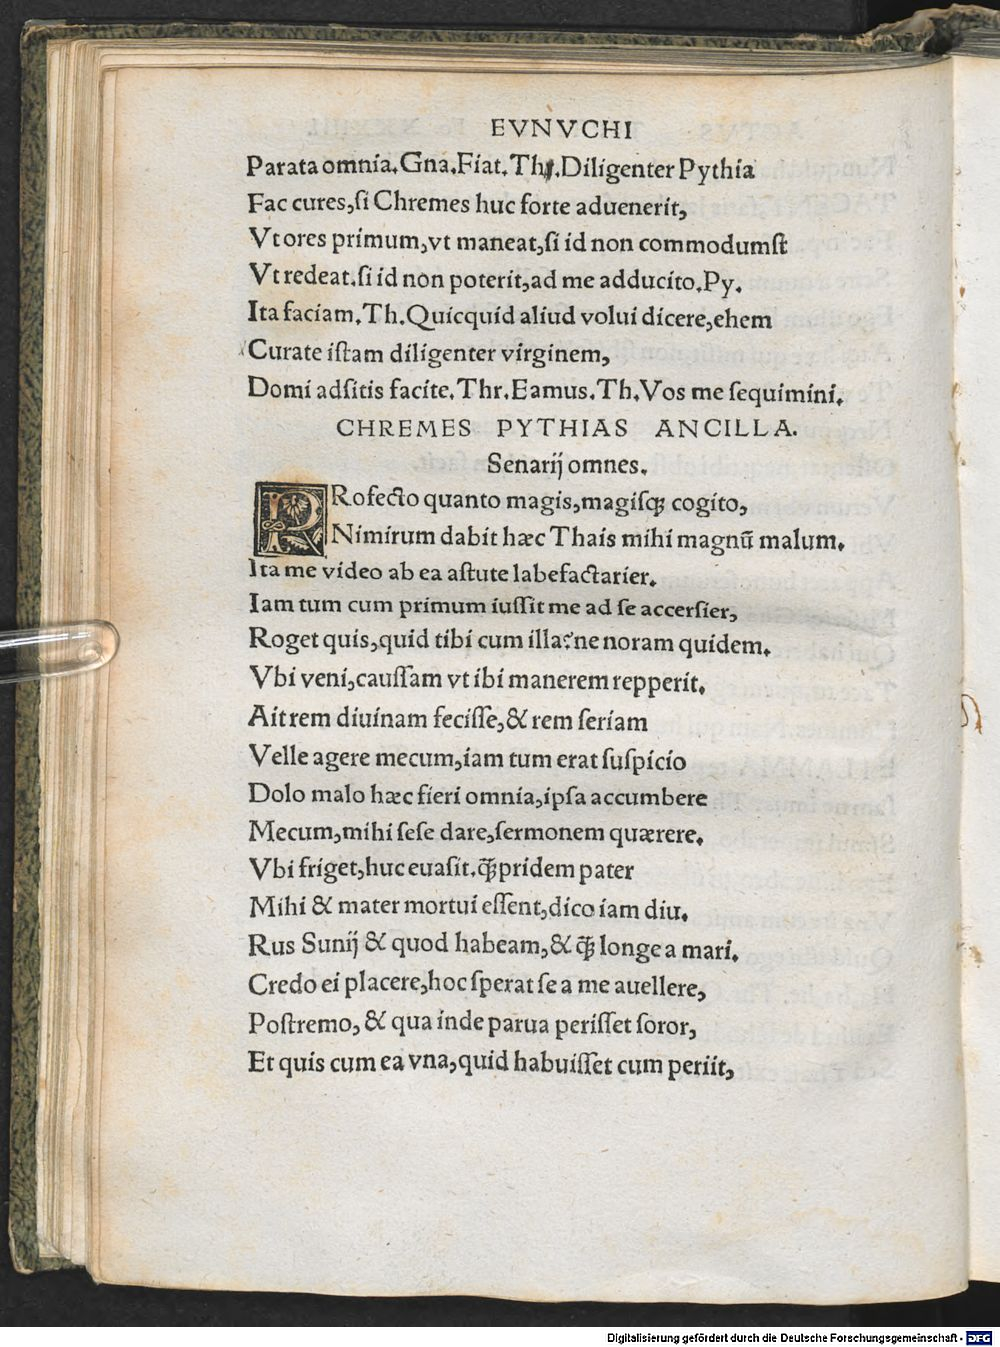 EVNVCHI
Parata omnia.Gna.Fiat.Th.Diligenter Pythia
Fac cures,ſi Chremes huc forte aduenerit,
Vt ores primum,vt maneat,ſi id non commodumſt
Vt redeat.ſi id non poterit,ad me adducito.Py.
Ita faciam.Th.Quicquid aliud volui dicere,ehem
Curate iſtam diligenter virginem,
Domi adſitis facite.Thr.Eamus.Th.Vos me ſequimini.
CHREMES PYTHIAS ANCILLA.
Senarij omnes.
R Rofecto quanto magis,magiſꝗ cogito,
Nimirum dabit hæc Thais mihi magnū malum.
Ita me video ab ea aſtute labefactarier.
Iam tum cum primum iuſſit me ad ſe accerſier,
Roget quis,quid tibi cum illa?ne noram quidem.
Vbi veni,cauſſam vt ibi manerem repperit.
Ait rem diuinam feciſſe,& rem ſeriam
Velle agere mecum,iam tum erat ſuſpicio
Dolo malo hæc fieri omnia,ipſa accumbere
Mecum,mihi ſeſe dare,ſermonem quærere.
Vbi friget,huc euaſit.ꝗ̃ pridem pater
Mihi & mater mortui eſſent,dico iam diu.
Rus Sunij & quod habeam,& ꝗ̃ longe a mari.
Credo ei placere,hoc ſperat ſe a me auellere,
Poſtremo, & qua inde parua periſſet ſoror,
Et quis cum ea vna,quid habuiſſet cum periit,
Digitalisierung gefördert durch die Deutsche Forschungsgemeinschaft - DFG